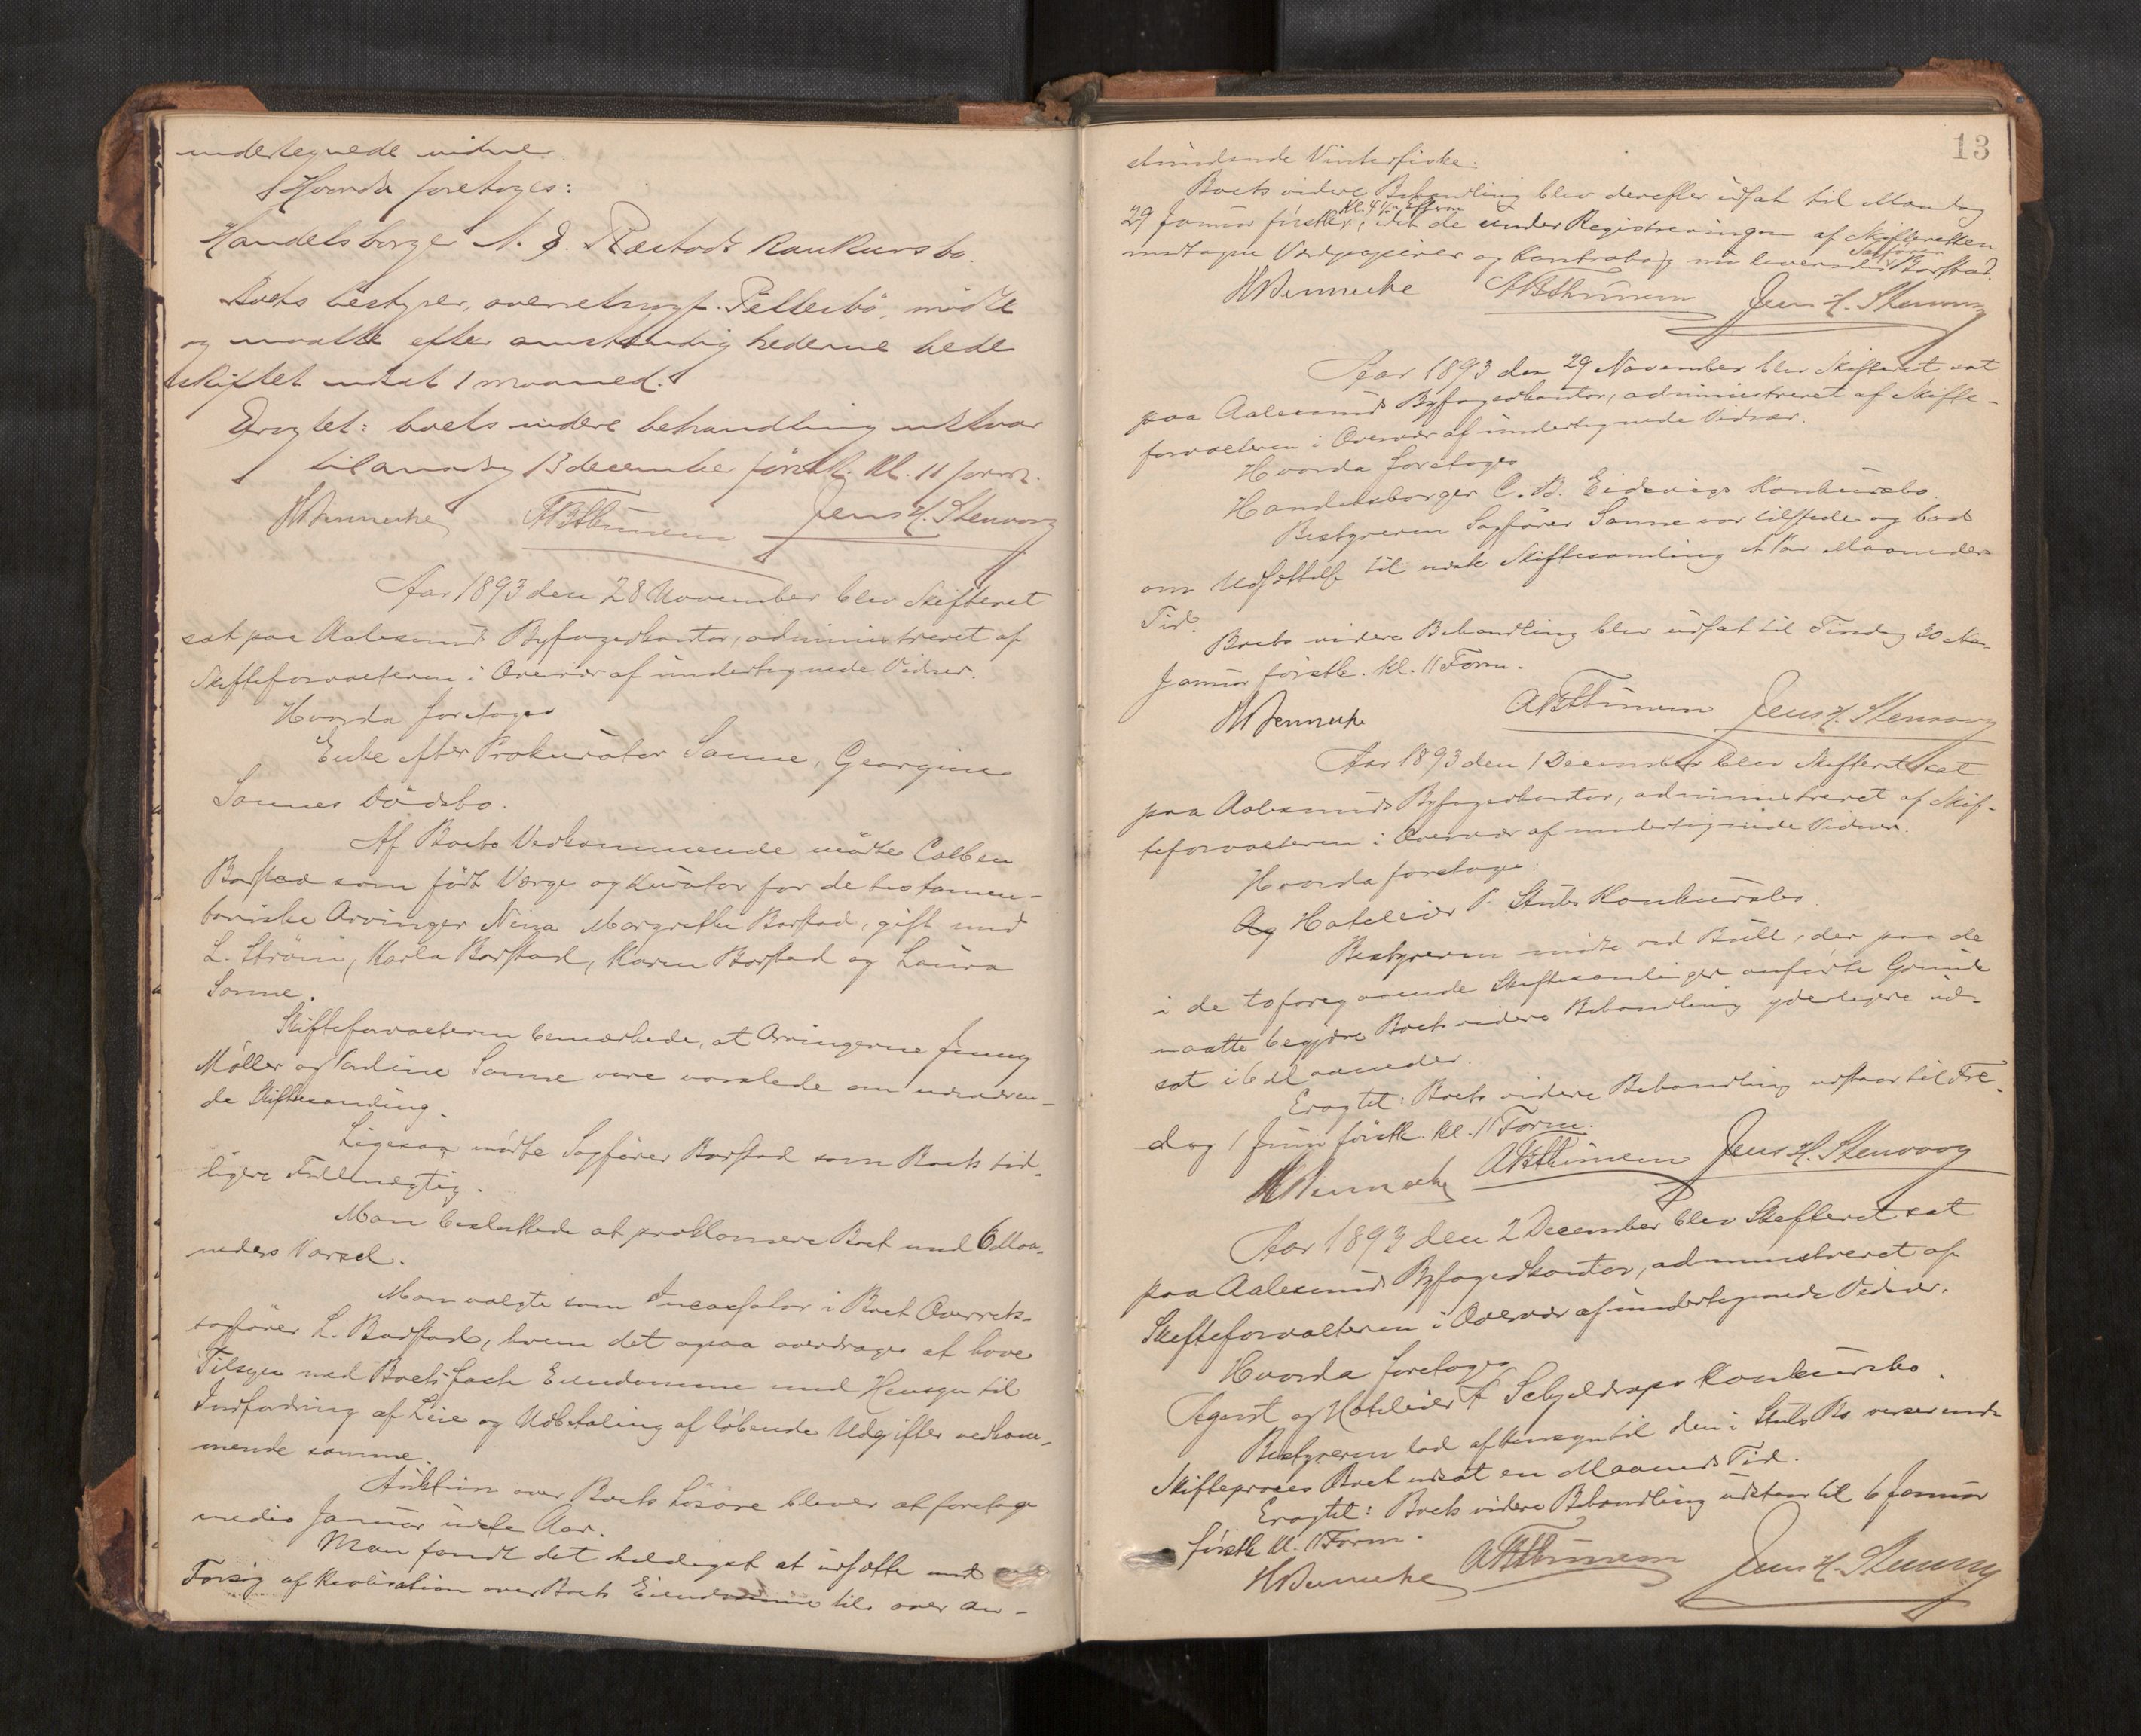 undertegnede vidner.
Hvorda foretoges:
Handelsborger N. J. Rästads konkursbo.
Boets bestyrer, overretssagf. Petterbö, mödte
og maatte efter omstændighederne bede
skiftet udsat 1 maaned.
Eragtet: boets videre behandling udstaar
til onsdag 13 december förstk. Kl. 11 form.
HBennecke ABThinnem Jens H. Stenvaag
Aar 1893 den 28 November blev Skifteret
sat paa Aalesunds Byfogedkontor, administreret af
Skifteforvalteren i Overvær af undertegnede Vidner.
Hvorda foretoges
Enke efter Prokurator Sanne, Georgine
Sannes Dödsbo.
Af Boets Vedkommende mödte Colben
Barstad som födt Værge og Kurator for de testamen-
tariske Arvinger Nina Margrethe Barstad, gift med
L. Ström, Karla Barstad, Karen Barstad og Laura
Sanne.
Skifteforvalteren bemærkede, at Arvingerne Jenny
Möller og Pauline Sanne vare varslede om nærværen-
de Skiftesamling.
Ligesaa mödte Sagförer Barstad som Boets tid-
ligere Fuldmægtig.
Man besluttede at proklamere Boet med 6 Maa-
neders Varsel.
Man valgte som Incassator i Boet Overrets-
sagförer L. Barstad, hvem det ogsaa overdrages at have
Tilsyn med Boets faste Eiendomme med Hensyn til
Indfordring af Leie og Udbetaling af löbende Udgifter vedkom-
mende samme.
Auktion over Boets Lösöre bliver at foretage
medio Januar næste Aar.
Man fandt det heldigst at udsætte med
Forsög af Realisation over Boets Eiendomme til over an-
13
stundende Vinterfiske.
Boets videre Behandling blev derefter udsat til Mandag
29 Januar förstk. Kl. 4 1/2 Efterm, idet de under Registreringen af Skifteretten
modtagne Værdipapirer og Kontrabog nu leveredes Sagförer Barstad.
HBennecke ABThinnem Jens H. Stenvaag
Aar 1893 den 29 November blev Skifteret sat
paa Aalesunds Byfogedkontor, administreret af Skifte-
forvalteren i Overvær af undertegnede Vidner.
Hvorda foretoges
Handelsborger C. B. Eidsvigs Konkursbo.
Bestyreren Sagförer Sanne var tilstede og bad
om Udsættelse til næste Skiftesamling et Par Maaneders
Tid.
Boets videre Behandling blev udsat til Tirsdag 30 de
Januar förstk. Kl. 11 Form.
HBennecke ABThinnem Jens H. Stenvaag
Aar 1893 den 1 December blev Skifteret sat
paa Aalesunds Byfogedkontor, administreret af Skif-
teforvalteren i Overvær af undertegnede Vidner.
Hvorda foretoges:
Ag Hoteleier P. Stubs Konkursbo.
Bestyreren mödte ved Bull, der paa de
i de to foregaaende Skiftesamlinger anförte Grunde
maatte begjære Boets videre Behandling yderligere ud-
sat i 6 Maaneder.
Eragtet: Boets videre Behandling udstaar til Fre-
dag 1 Juni förstk. Kl. 11 Form.
HBennecke ABThinnem Jens H. Stenvaag
Aar 1893 den 2 December blev Skifteret sat
paa Aalesunds Byfogedkontor, administreret af
Skifteforvalteren i Overvær af undertegnede Vidner.
Hvorda foretoges
Agent og Hoteleier A Schjelderups Konkursbo.
Bestyreren bad af Hensyn til den i Stubs Bo verserende
Skifteproces Boet udsat en Maaneds Tid.
Eragtet: Boets videre Behandling udstaar til 6 Januar
förstk Kl. 11 Form.
HBennecke ABThinnem Jens H. Stenvaag